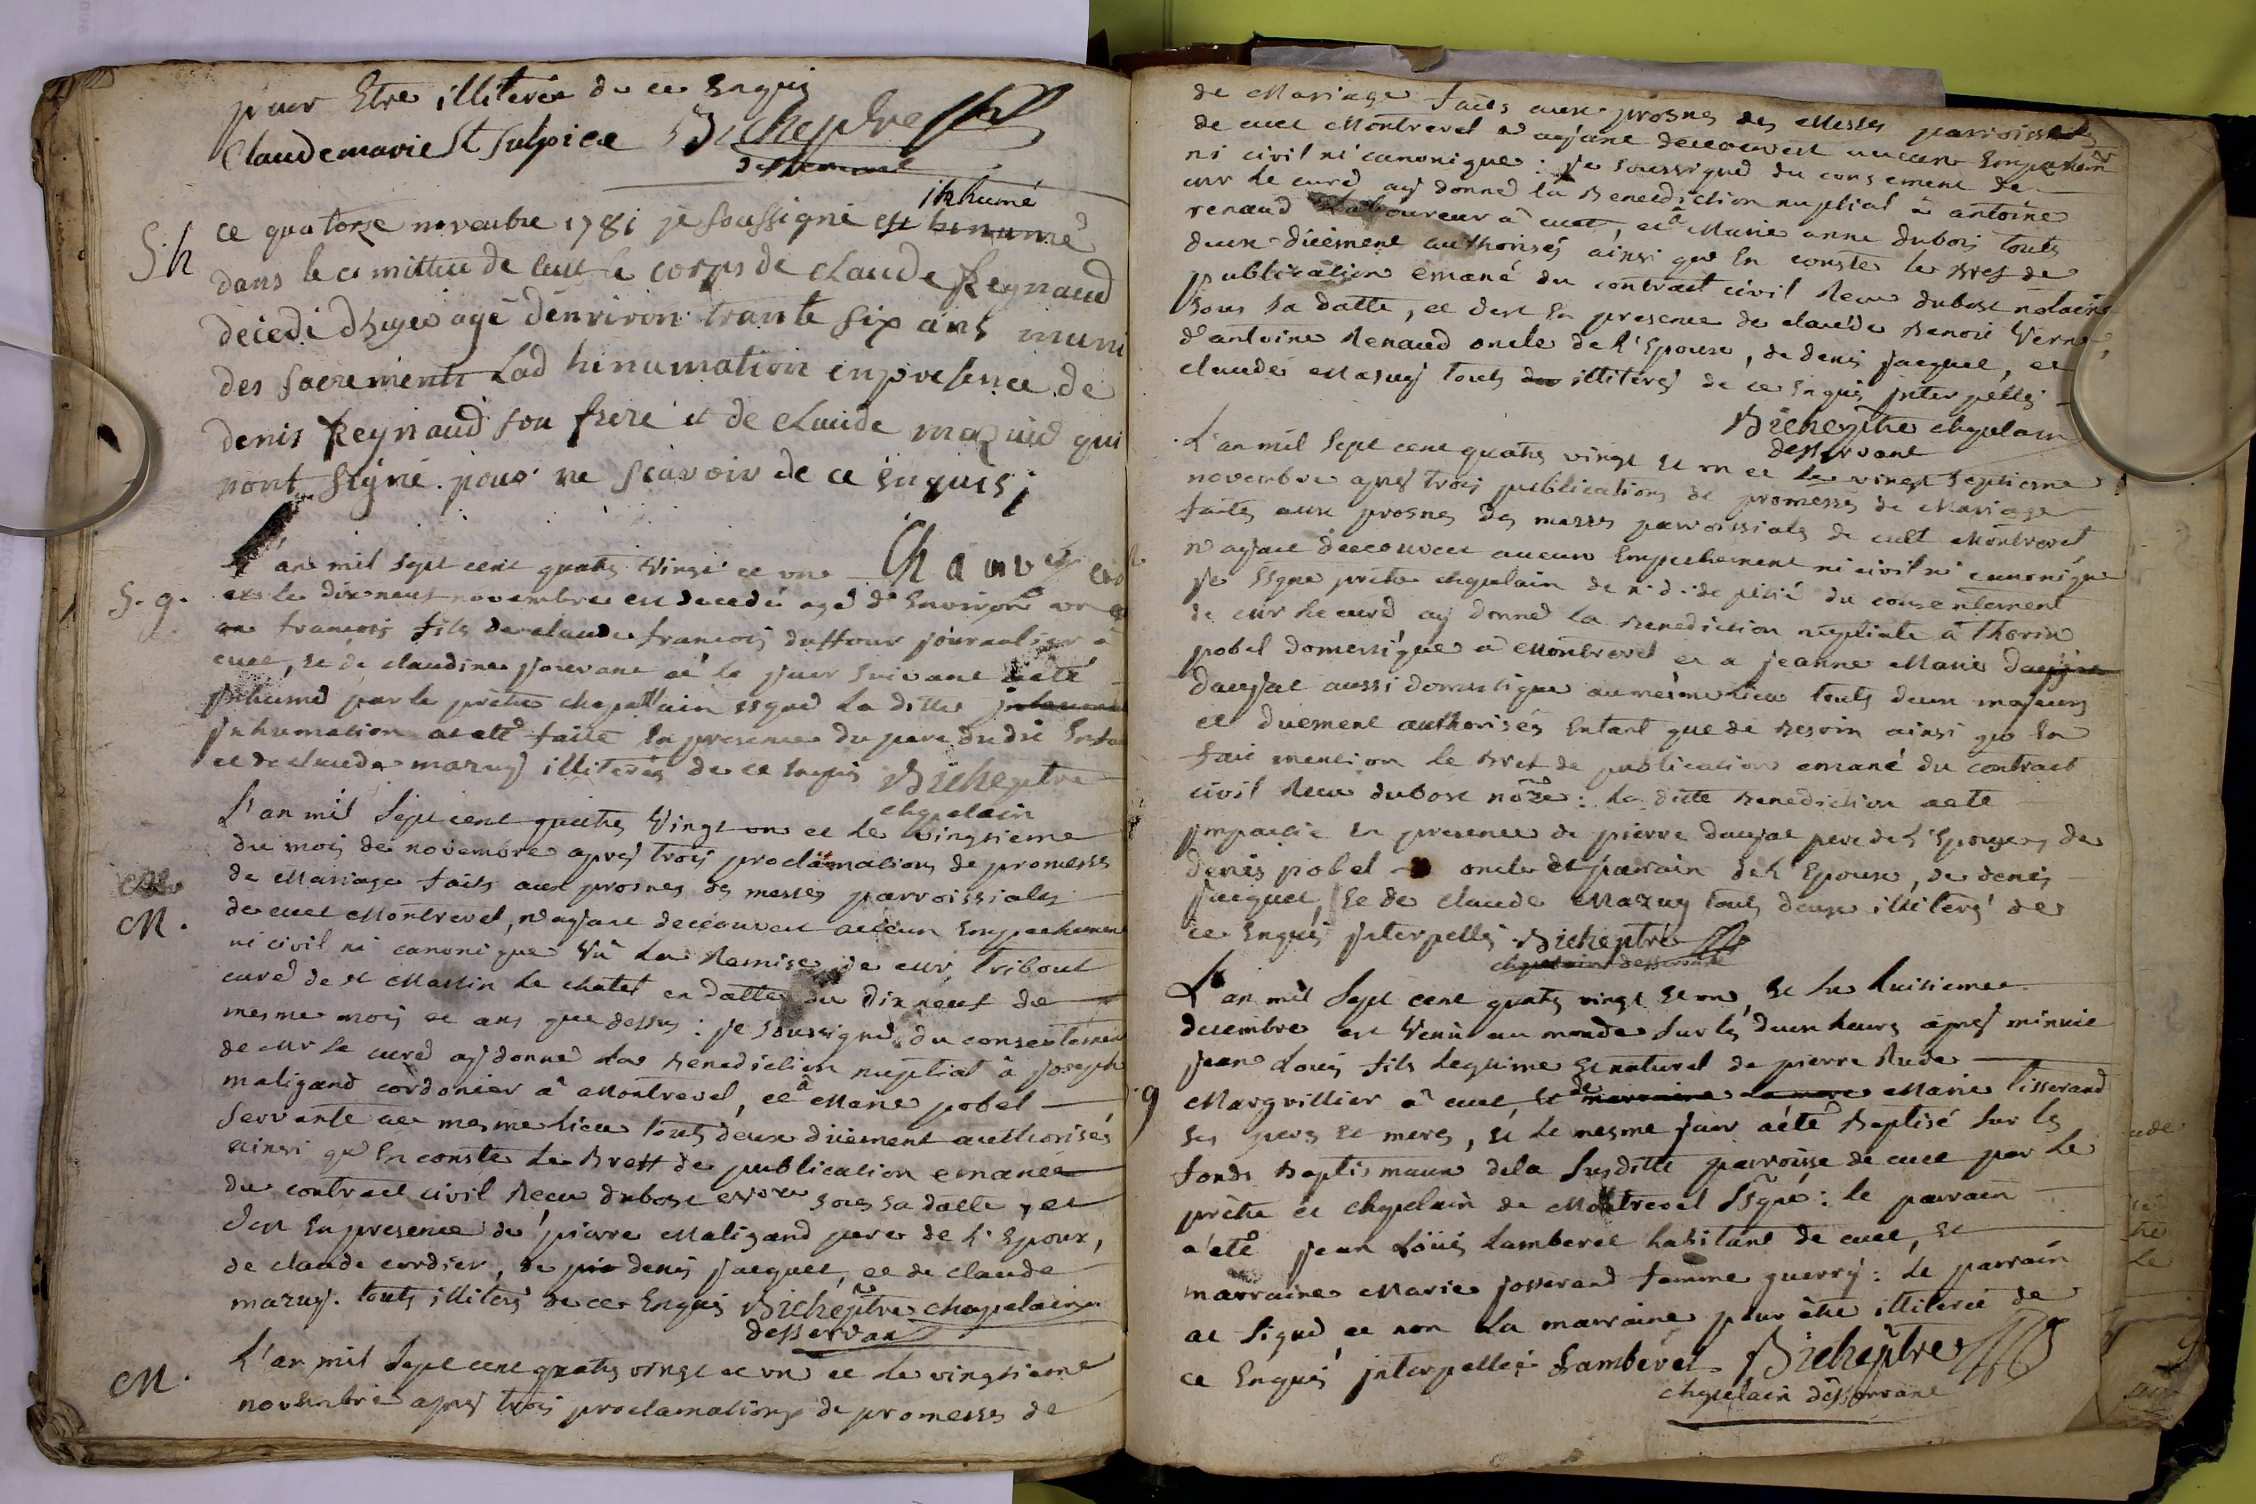 pour Etre illiterée de ce Enquis
Claudemarie St Sulpice Bicheptre
desservant
S. h
ce quatorze novembre 1781 je soussigné est inhumé
dans le cimittiere de cuet le corps de claude Reynaud
decedé agé d'environ trante six ans muni
des sacrements Lad hinumation en presence de
denis Reynaud son frere et de claude mazuid qui
nont signé pour ne scavoir de ce enquis
Chauvet curé
S. g.
L'an mil sept cent quatre vingt et un
et le dix neuf novembre est decedé agé d'Environ un
an francois fils de claude francois duffour journalier à
cuet, et de claudine josserant et le jour suivant a eté
Inhumé par le prêtre chapellain ssgné La ditte
Inhumation at eté faite En presence du pere dudit Enfant
et de claude mazuy illiterés de ce Enquis Bicheptre
chapelain
M.
L'an mil Sept cent quatre Vingt un et Le vingtieme
du mois de novembre apres trois proclamations de promesses
de Mariage faits aux prosnes des messes parroissiales
de cuet Montrevel, n'ayant deccouvert aucun Empechement
ni civil ni canonique Vû La Remise de Mr Tribout
curé de St Martin Le chatel en datte du Dix neuf de
mesme mois et ans que dessus : je soussigné du consentement
de Mr Le curé ay donné La Benediction nuptial à joseph
maligand cordonier à Montrevel, et à Marie pobel
Servante au mesme Lieu touts deux düement authorisés
ainsi qu'En conste Le Breff de publication emanée
du contract civil Recu dubost sous sa datte, et
d'est En presence de pierre Maligand pere de L'Epoux,
de claude cordier, de denis jacquet, et de claude
mazuy. touts illiterés de ce Enquis Bicheptre chapelain
desservant
M.
L'an mil Sept cent quatre vingt et un et Le vingtieme
novembre apres trois proclamations de promesses de
de Mariage faits aux prosnes des Messes parroissiales
de cuet Montrevel n'ayant deccouvert aucun Empechem
ni civil ni canonique : je soussigné du consement de
Mr Le curé ay donné la Benediction nuptial à antoine
renaud Laboureur à cuet, et à Marie anne dubois touts
deux düement authorisés ainsi qu'En conste Le Bref de
publication emané du contract civil Recu dubost notaire
sous sa datte, et d'est En presence de claude Benoit Verne,
d'antoine Renaud oncle de L'Epoux, de denis jacquet, et
claude Mazuy touts illiterés de ce Enquis Interpellés
Bicheptre chapelain
desservant
L'an mil Sept cent quatre vingt et un et Le vingt septieme
novembre apres trois publications de promesses de Mariage
faites aux prosnes des messes parroissiales de cuet Montrevel
n'ayant deccouvert aucun Empechement ni civil ni canonique
je ssgné prêtre chapelain de n. d. de pitié du consentement
de Mr Le curé ay donné La Benediction nuptiale à Thorin
pobel domestique à Montrevel et a jeanne Marie
daujat aussi domestique au mesme Lieu touts deux majeurs
et duement authorisés Entant que de Besoin ainsi qu'En
fait mention Le Bref de publication emané du contract
civil Recu dubost nõre : La ditte Benediction a eté
Impartie En presence de pierre daujat pere de L'Epouse, de
denis pobel oncle et parrain de L'Epoux, de denis
jacquet, et de claude Mazuy touts deux illiterés de
ce Enquis Interpellés Bicheptre
chapelain desservant
g
L'an mil Sept cent quatre vingt et un, et Le huitieme
decembre est Venû au monde sur les deux heures apres minuit
jean Louis fils Legitime et naturel de pierre Rude
Margvillier à cuet, et de Marie Tisserand
ses pere et mere, et Le mesme jour a été Baptisé sur les
fonds Baptismaux de la susditte parroisse de cuet par Le
prêtre et chapelain de Montrevel ssgné : le parrain
a eté jean Loüis Lamberet habitant de cuet, et
marraine Marie josserand femme guerry : Le parrain
at signé et non La marraine pour être illiterée de
ce Enquis Interpellée Lamberet Bicheptre
chapelain desservant